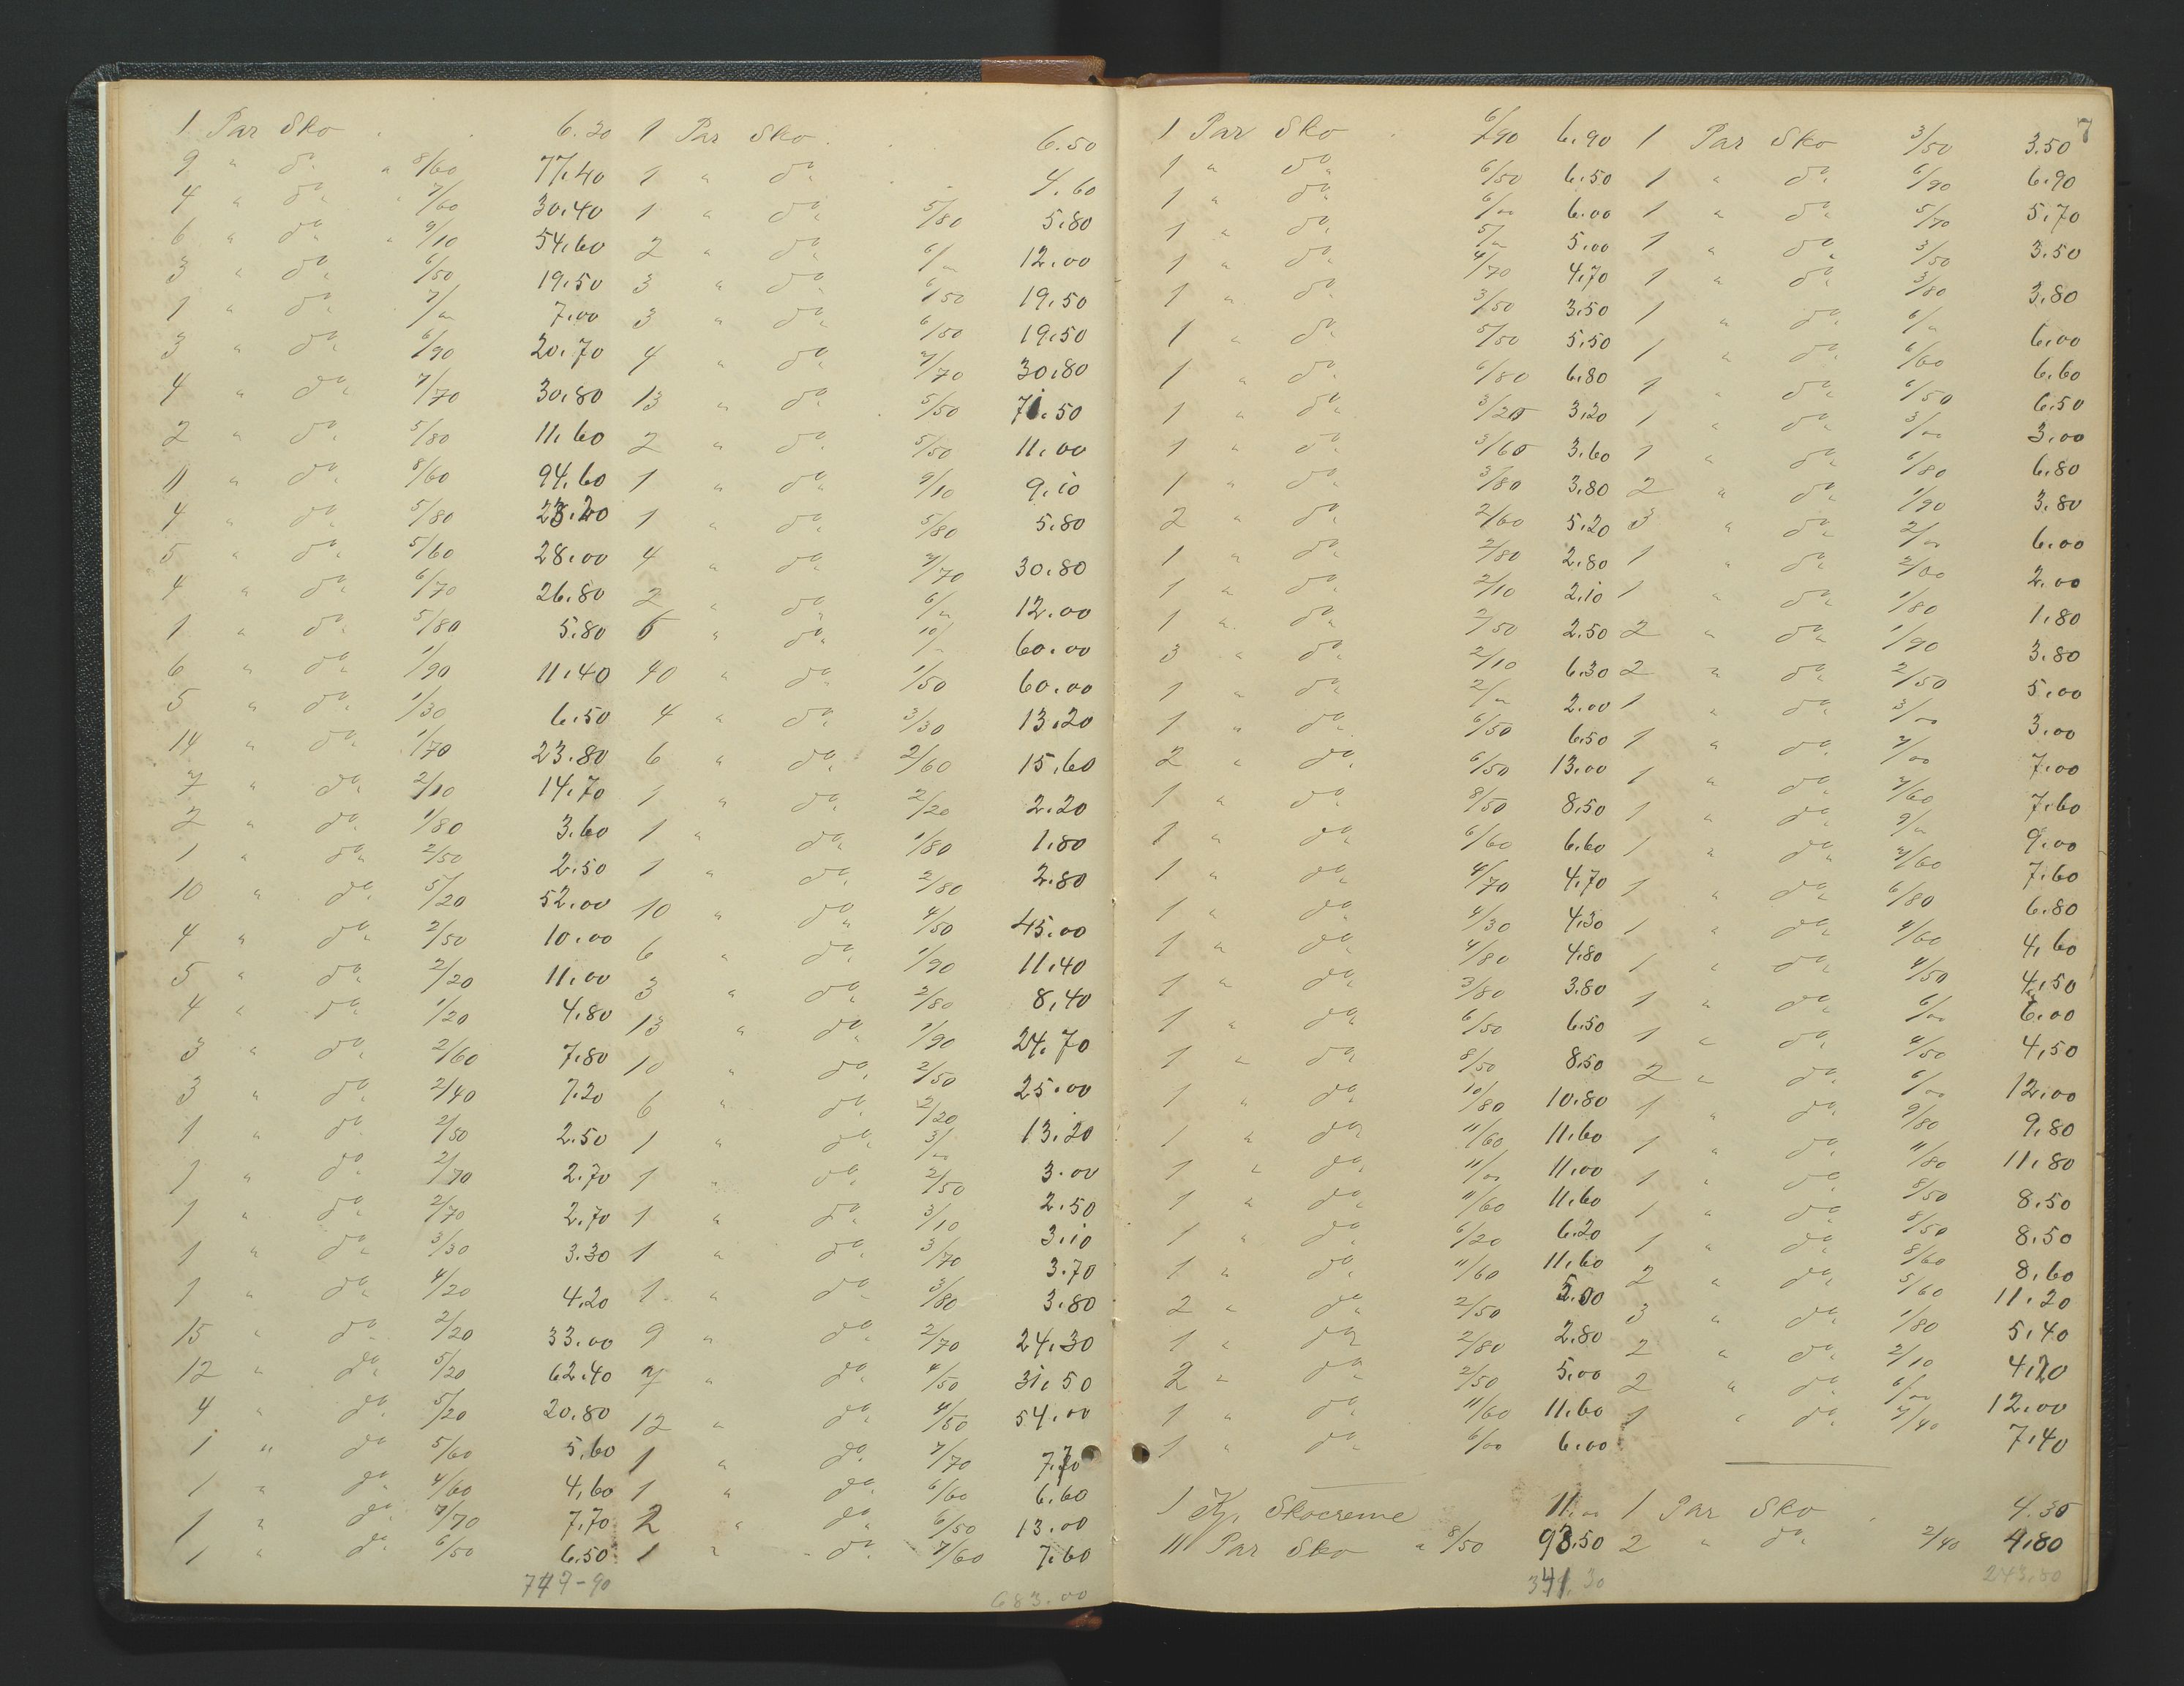 1 Par Sko . . 6.20
9 " do " 8/60 77.40
4 " do " 7/60 30.40
6 " do " 9/10 54.60
3 " do 6/50 19.50
1 " do 7/" 7.00
3 " do 6/90 20.70
4 " do 7/70 30.80
2 " do 5/80 11.60
11 " do 8/60 94.60
4 " do 5/80 23.20
5 " do 5/60 28.00
4 " do 6/70 26.80
1 " do 5/80 5.80
6 " do 1/90 11.40
5 " do 1/30 6.50
14 " do 1/70 23.80
7 " do 2/10 14.70
2 " do 1/80 3.60
1 " do 2/50 2.50
10 " do 5/20 52.00
4 " do 2/50 10.00
5 " do 2/20 11.00
4 " do 1/20 4.80
3 " do 2/60 7.80
3 " do 2/40 7.20
1 " do 2/50 2.50
1 " do 2/70 2.70
1 " do 2/70 2.70
1 " do 3/30 3.30
1 " do 4/20 4.20
15 " do 2/20 33.00
12 " do 5/20 62.40
4 " do 5/20 20.80
1 " do 5/60 5.60
1 " do 4/60 4.60
1 " do 7/70 7.70
1 " do 6/50 6.50
749-90
1 Par Sko . . 6.50
1 " do . . 4.60
1 " do 5/80 5.80
2 " do 6/" 12.00
3 " do 6/50 19.50
3 " do 6/50 19.50
4 " do 7/70 30.80
13 " do 5/50 71.50
2 " do 5/50 11.00
1 " do 9/10 9.10
1 " do 5/80 5.80
4 " do 7/70 30.80
2 " do 6/" 12.00
6 " do 10/" 60.00
40 " do 1/50 60.00
4 " do 3/30 13.20
6 " do 2/60 15.60
1 " do 2/20 2.20
1 " do 1/80 1.80
1 " do 2/80 2.80
10 " do 4/50 45.00
6 " do 1/90 11.40
3 " do 2/80 8.40
13 " do 1/90 24.70
10 " do 2/50 25.00
6 " do 2/20 13.20
1 " do 3/" 3.00
1 " do 2/50 2.50
1 " do 3/10 3.10
1 " do 3/70 3.70
1 " do 3/80 3.80
9 " do 2/70 24.30
7 " do 4/50 31.50
12 " do 4/50 54.00
1 " do 7/70 7.70
1 " do 6/60 6.60
2 " do 6/50 13.00
1 " do 7/60 7.60
683.00
1 Par Sko . 6/90 6.90
1 " do 6/50 6.50
1 " do 6/00 6.00
1 " do 5/" 5.00
1 " do 4/70 4.70
1 " do 3/50 3.50
1 " do 5/50 5.50
1 " do 6/80 6.80
1 " do 3/20 3.20
1 " do 3/60 3.60
1 " do 3/80 3.80
2 " do 2/60 5.20
1 " do 2/80 2.80
1 " do 2/10 2.10
1 " do 2/50 2.50
3 " do 2/10 6.30
1 " do 2/" 2.00
1 " do 6/50 6.50
2 " do 6/50 13.00
1 " do 8/50 8.50
1 " do 6/60 6.60
1 " do 4/70 4.70
1 " do 4/30 4.30
1 " do 4/80 4.80
1 " do 3/80 3.80
1 " do 6/50 6.50
1 " do 8/50 8.50
1 " do 10/80 10.80
1 " do 11/60 11.60
1 " do 11/00 11.00
1 " do 11/60 11.60
1 " do 6/20 6.20
1 " do 11/60 11.60
2 " do 2/50 5.00
1 " do 2/80 2.80
2 " do 2/50 5.00
1 " do 11/60 11.60
1 " do 6/00 6.00
1 Kp. Skocreme 11.00
11 Par Sko " 8/50 93.50
341.30
7
1 Par Sko 3/50 3.50
1 " do 6/90 6.90
1 " do 5/70 5.70
1 " do 3/50 3.50
1 " do 3/80 3.80
1 " do 6/" 6.00
1 " do 6/60 6.60
1 " do 6/50 6.50
1 " do 3/00 3.00
1 " do 6/80 6.80
2 " do 1/90 3.80
3 " do 2/00 6.00
1 " do 2/00 2.00
1 " do 1/80 1.80
2 " do 1/90 3.80
2 " do 2/50 5.00
1 " do 3/00 3.00
1 " do 7/00 7.00
1 " do 7/60 7.60
1 " do 9/" 9.00
1 " do 7/60 7.60
1 " do 6/80 6.80
1 " do 4/60 4.60
1 " do 4/50 4.50
1 " do 6/00 6.00
1 " do 4/50 4.50
2 " do 6/00 12.00
1 " do 9/80 9.80
1 " do 11/80 11.80
1 " do 8/50 8.50
1 " do 8/50 8.50
1 " do 8/60 8.60
2 " do 5/60 11.20
3 " do 1/80 5.40
2 " do 2/10 4.20
2 " do 6/00 12.00
1 " do 7/40 7.40
1 Par Sko . 4.30
2 " do 2/40 4.80
243.80